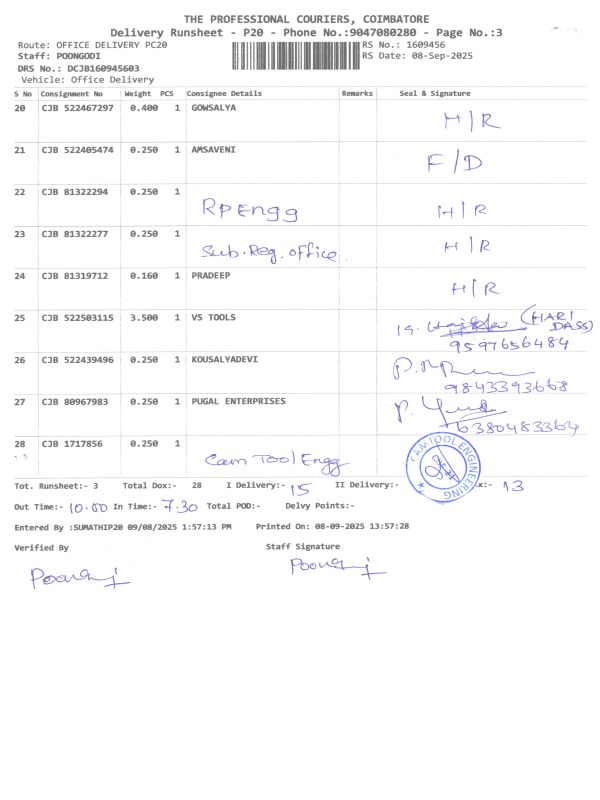 THE PROFESSIONAL COURIERS, COIMBATORE
Delivery Runsheet - P20 - Phone No.:9047080280 - Page No.:3
Route: OFFICE DELIVERY PC20 RS No.: 1609456
Staff: POONGODI RS Date: 08-Sep-2025
DRS No.: DCJB160945603
Vehicle: Office Delivery
S No Consignment No Weight PCS Consignee Details Remarks Seal & Signature
20 CJB 522467297 0.400 1 GOWSALYA H/R
21 CJB 522405474 0.250 1 AMSAVENI F/D
22 CJB 81322294 0.250 1 RP Engg H/R
23 CJB 81322277 0.250 1 Sub.Reg.office H/R
24 CJB 81319712 0.160 1 PRADEEP H/R
25 CJB 522503115 3.500 1 VS TOOLS (HARI DASS)
9597656484
26 CJB 522439496 0.250 1 KOUSALYADEVI
9843393668
27 CJB 80967983 0.250 1 PUGAL ENTERPRISES
6380483364
28 CJB 1717856 0.250 1 Cam Tool Engg CAM TOOL ENGINEERING
Tot. Runsheet:- 3 Total Dox:- 28 I Delivery:- 15 II Delivery:- x:- 13
Out Time:- 10.00 In Time:- 7.30 Total POD:- Delvy Points:-
Entered By :SUMATHIP20 09/08/2025 1:57:13 PM Printed On: 08-09-2025 13:57:28
Verified By Staff Signature